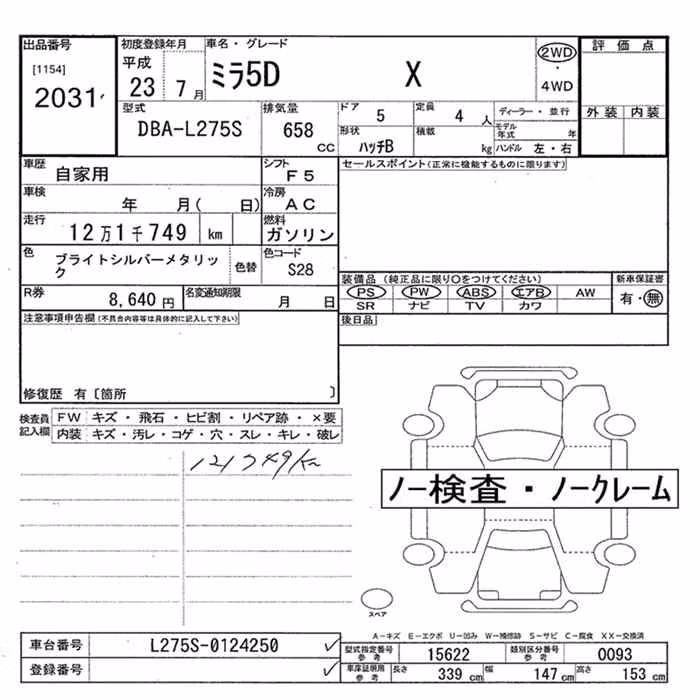 出品番号
[1154]
2031
初度登録年月
平成
23 7 月
車名・グレード
ミラ5D X
2WD
・
4WD
評価点
外装 内装
型式
DBA-L275S
排気量
658
CC
ドア
5
定員
4 人
形状
ハッチB
積載
kg
ディーラー・並行
モデル
年式 年
ハンドル 左・右
車歴
自家用
シフト
F5
車検
年 月( 日)
冷房
AC
走行
12万1千749 km
燃料
ガソリン
色
ブライトシルバーメタリッ
ク
色替
色コード
S28
R券
8,640 円
名変通知期限
月 日
セールスポイント(正常に機能するものに限ります)
装備品(純正品に限り○をつけてください)
新車保証書
PS PW ABS エアB AW
有・無
SR ナビ TV カワ
後日品
注意事項申告欄(不具合内容等は具体的に記入して下さい)
修復歴 有〔箇所 〕
検査員
記入欄
FW キズ・飛石・ヒビ割・リペア跡・×要
内装 キズ・汚レ・コゲ・穴・スレ・キレ・破レ
121749km
ノー検査・ノークレーム
スペア
A-キズ E-エクボ U-凹み W-補修跡 S-サビ C-腐食 XX-交換済
車台番号 L275S-0124250 ✓
登録番号 ✓
型式指定番号
参考
15622
類別区分番号
参考
0093
車庫証明用
参考
長さ
339 cm
幅
147 cm
高さ
153 cm